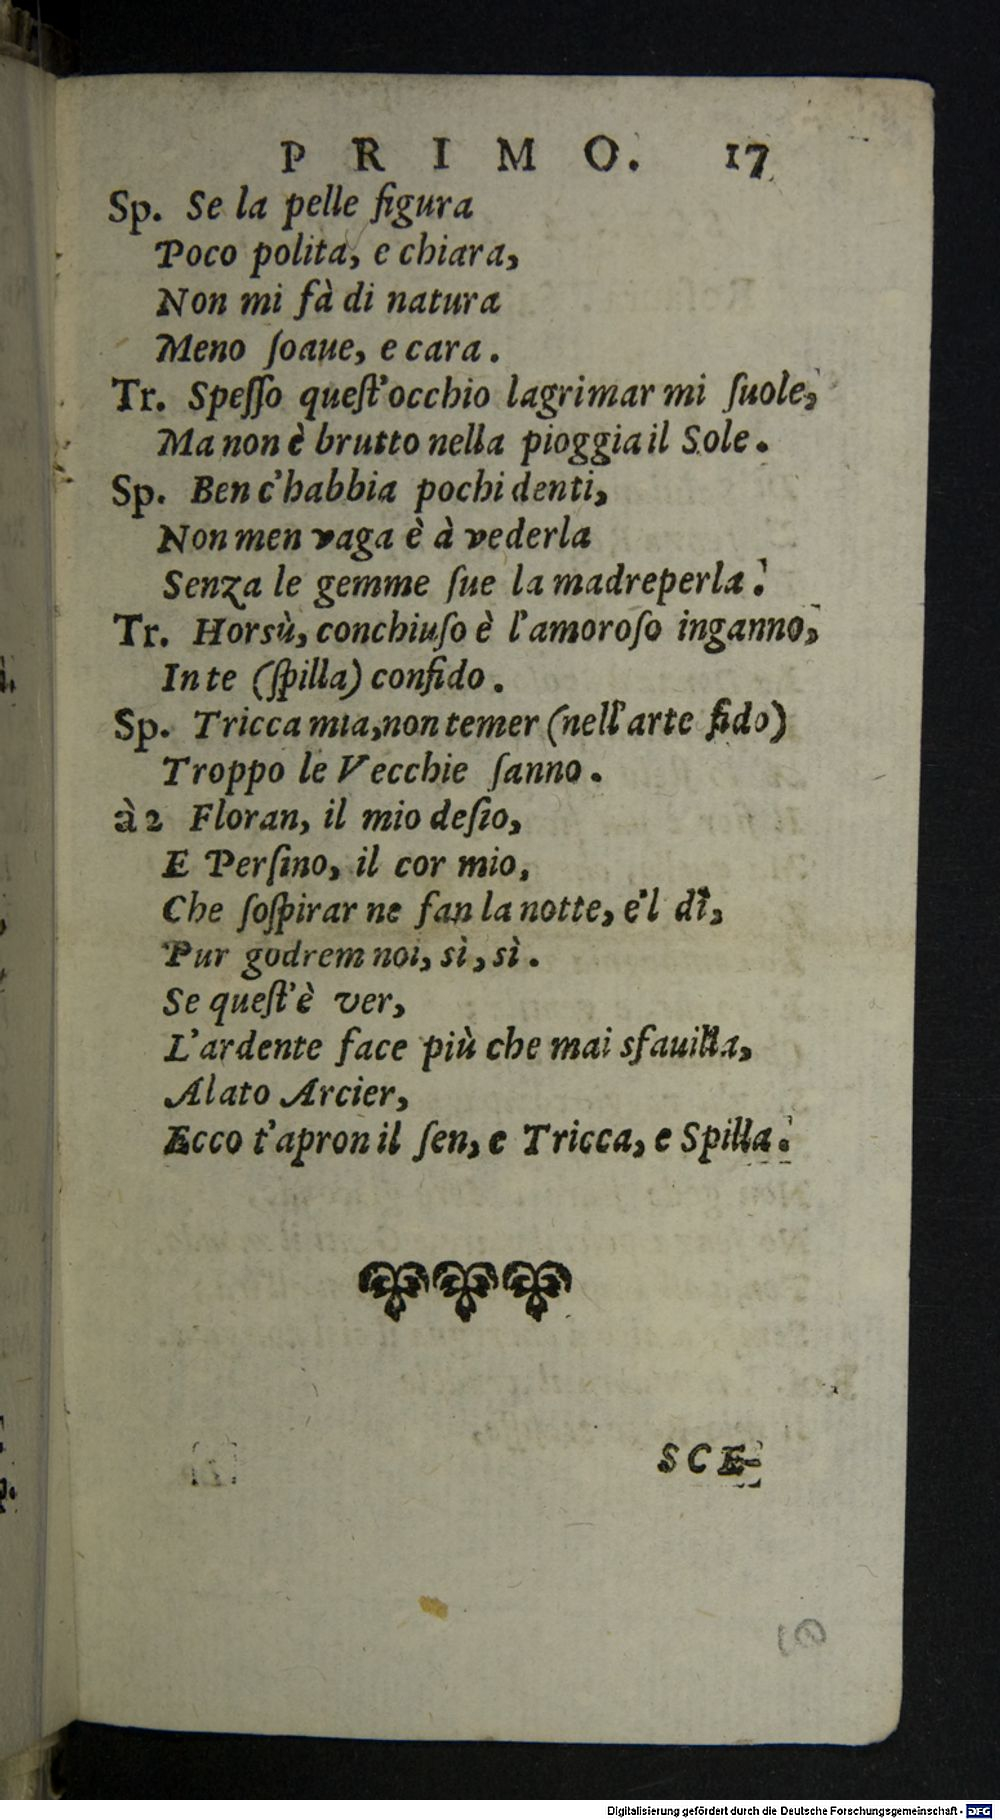 PRIMO. 17
Sp. Se la pelle figura
Poco polita, e chiara,
Non mi fà di natura
Meno ſoaue, e cara.
Tr. Speſſo queſt'occhio lagrimar mi ſuole,
Ma non è brutto nella pioggia il Sole.
Sp. Ben c'habbia pochi denti,
Non men vaga è à vederla
Senza le gemme ſue la madreperla.
Tr. Horsù, conchiuſo è l'amoroſo inganno,
In te (ſpilla) confido.
Sp. Tricca mia, non temer (nell'arte fido)
Troppo le Vecchie ſanno.
à 2 Floran, il mio deſio,
E Perſino, il cor mio,
Che ſoſpirar ne fan la notte, e'l dì,
Pur godrem noi, sì, sì.
Se queſt'è ver,
L'ardente face più che mai sfauilla,
Alato Arcier,
Ecco t'apron il ſen, e Tricca, e Spilla.
SCE-
Digitalisierung gefördert durch die Deutsche Forschungsgemeinschaft - DFG